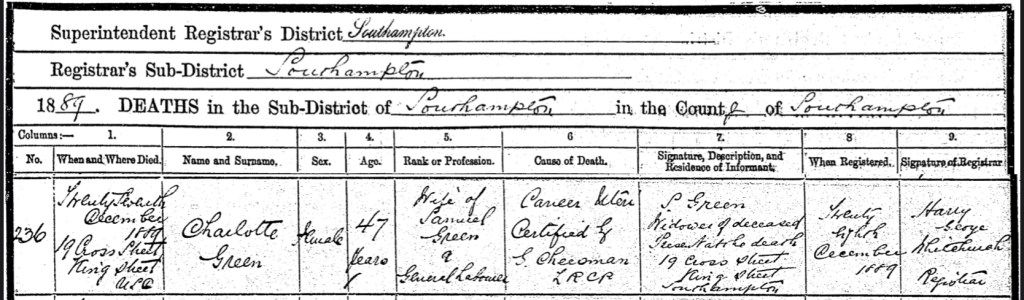 Superintendent Registrar's District Southampton.
Registrar's Sub-District Southampton
1889. DEATHS in the Sub-District of Southampton in the County of Southampton
Columns:— 1. 2. 3. 4. 5. 6 7. 8 9.
No. When and Where Died. Name and Surname. Sex. Age. Rank or Profession. Cause of Death. Signature, Description, and Residence of Informant. When Registered. Signature of Registrar
236
Twenty
December
1889
19 Cross Street
King Street
Charlotte
Green
Female
47
Years
Wife of
Samuel
Green
a
General Labourer
Cancer Uteri
Certified by
G. Cheesman
LRCP
S Green
Widower of deceased
Present at the death
19 Cross Street
King Street
Southampton
Twenty
Eighth
December
1889
Harry
George
Whitchurch
Registrar